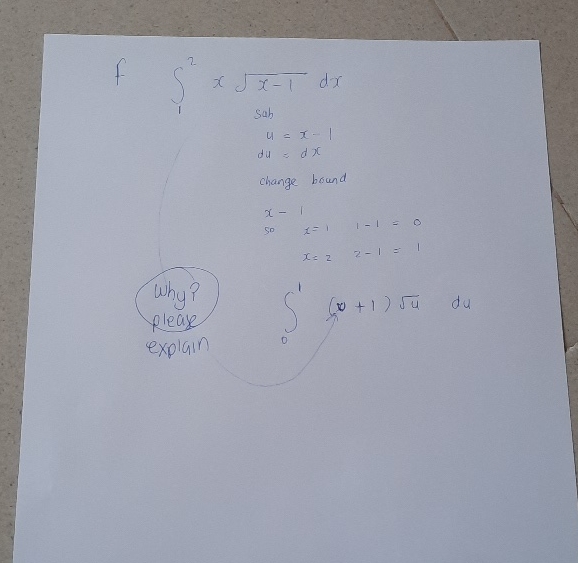 f ∫₁² x √x-1 dx
sub
u = x - 1
du = dx
change bound
x - 1
so x=1 1-1 = 0
x=2 2-1 = 1
Why?
please
explain
∫₀¹ ( + 1) √u du